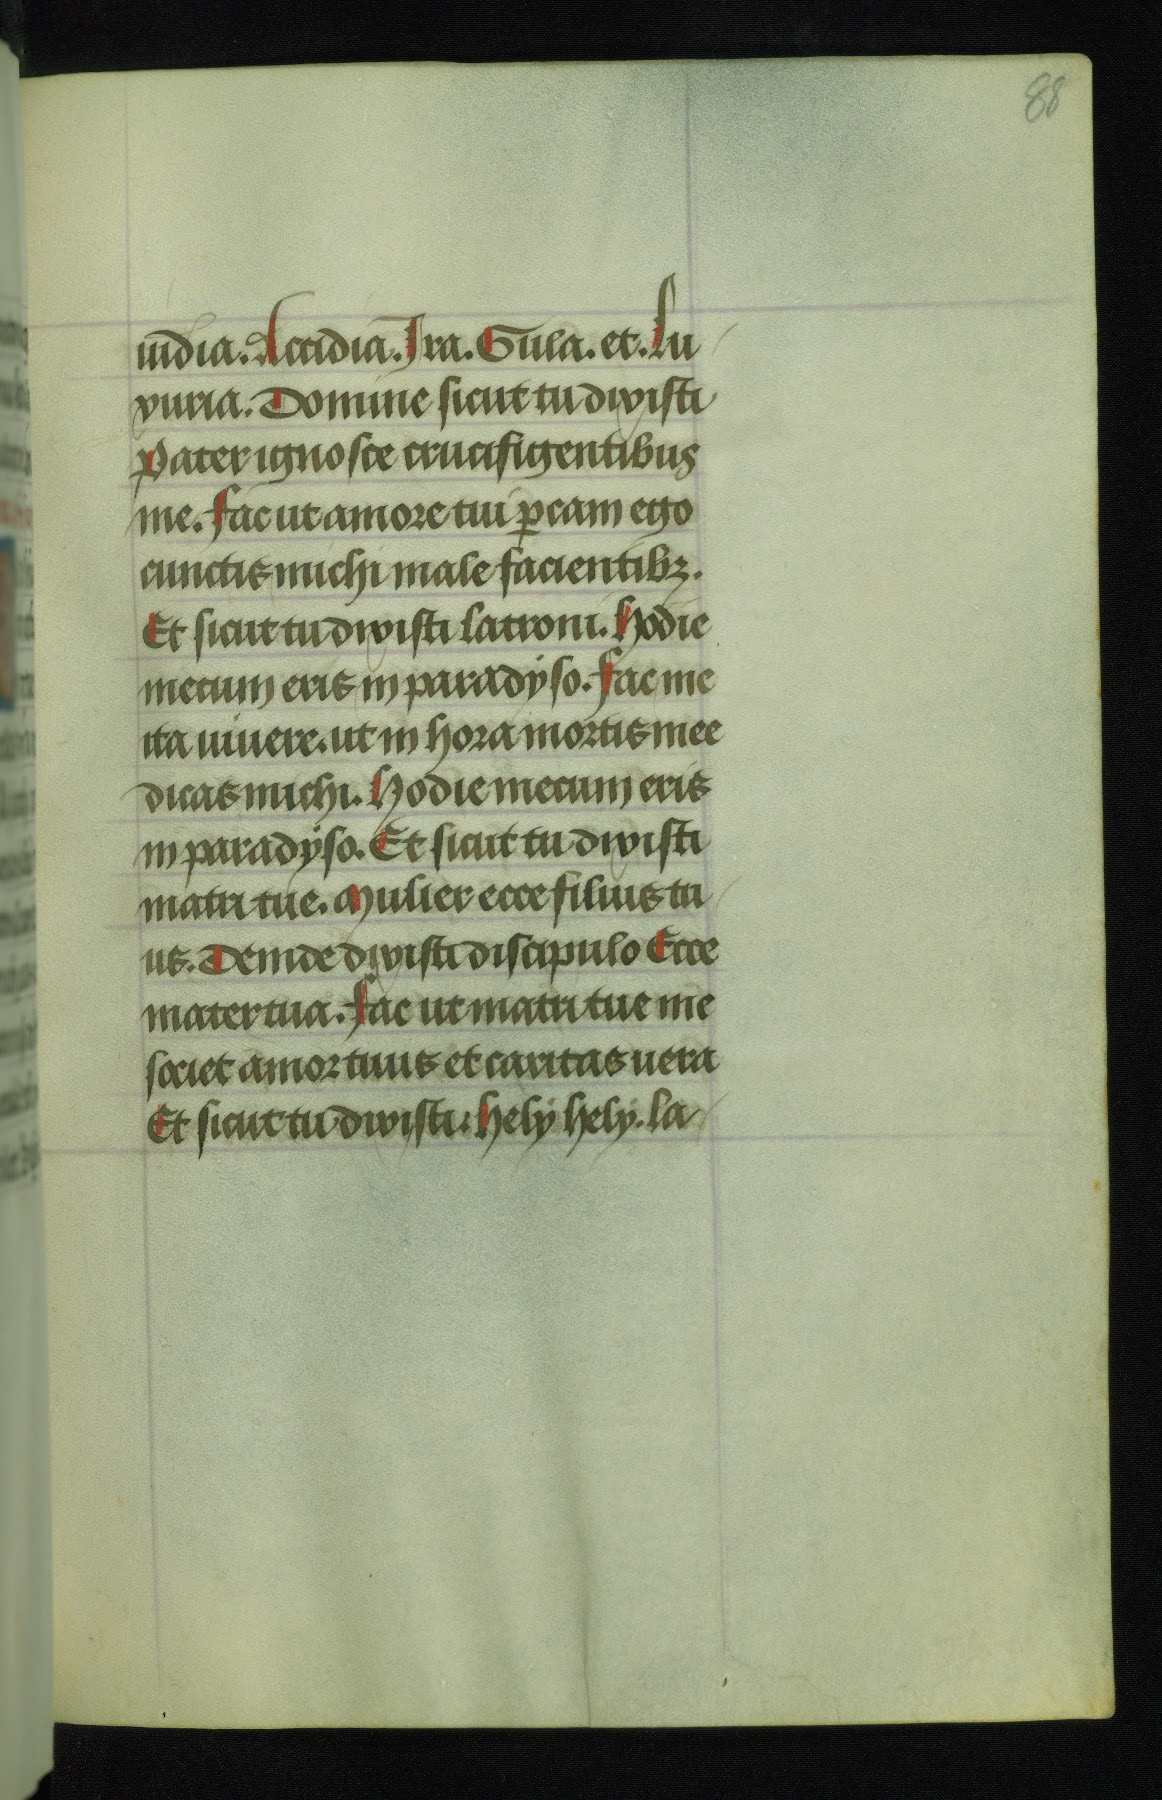 88
uidia. Accidia. Ira. Gula. et. Lu
xuria. Domine sicut tu dixisti
Pater ignosce crucifigentibus
me. Fac ut amore tui ꝑcam ego
cunctis michi male facientibꝫ.
Et sicut tu dixisti latroni. Hodie
mecum eris in paradÿso. Fac me
ita uiuere. ut in hora mortis mee
dicas michi. Hodie mecum eris
in paradÿso. Et sicut tu dixisti
matri tue. Mulier ecce filius tu
us. Deinde dixisti discipulo Ecce
mater tua. Fac ut matri tue me
societ amor tuus et caritas uera
Et sicut tu dixisti. Helÿ helÿ. la